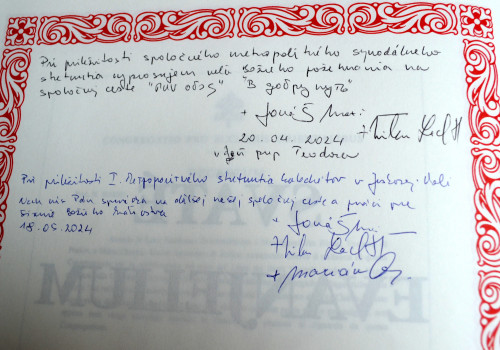 Pri príležitosti spoločného metropolitného synodálneho
stretnutia vyprosujem veľa Božieho požehnania na
spoločnej ceste "συν οδος" "В добрый путь"
+ Jonáš
20.04.2024
+ Milan
v deň prep Teodora
Pri príležitosti I. Metropolitného stretnutia katechétov v Juskovej Voli
Nech nás Pán sprevádza na ďalšej našej spoločnej ceste a práci pre
Božieho Kráľovstva
18.05.2024
+ Jonáš
+ Milan
+ Marián
SVÄT
EVANJELIUM